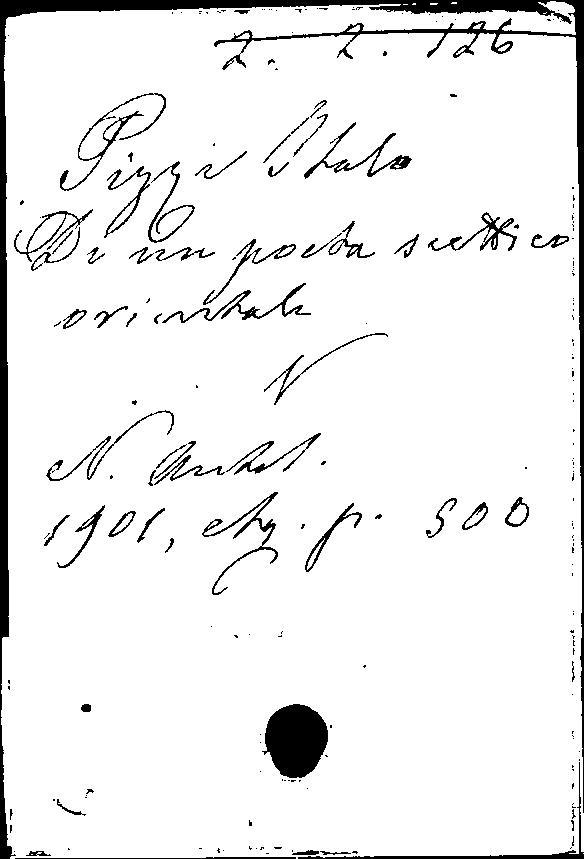 2. 2. 126
Pizzi Italo
Di un poeta scettico
orientale
N. Antol.
1901, p. 500